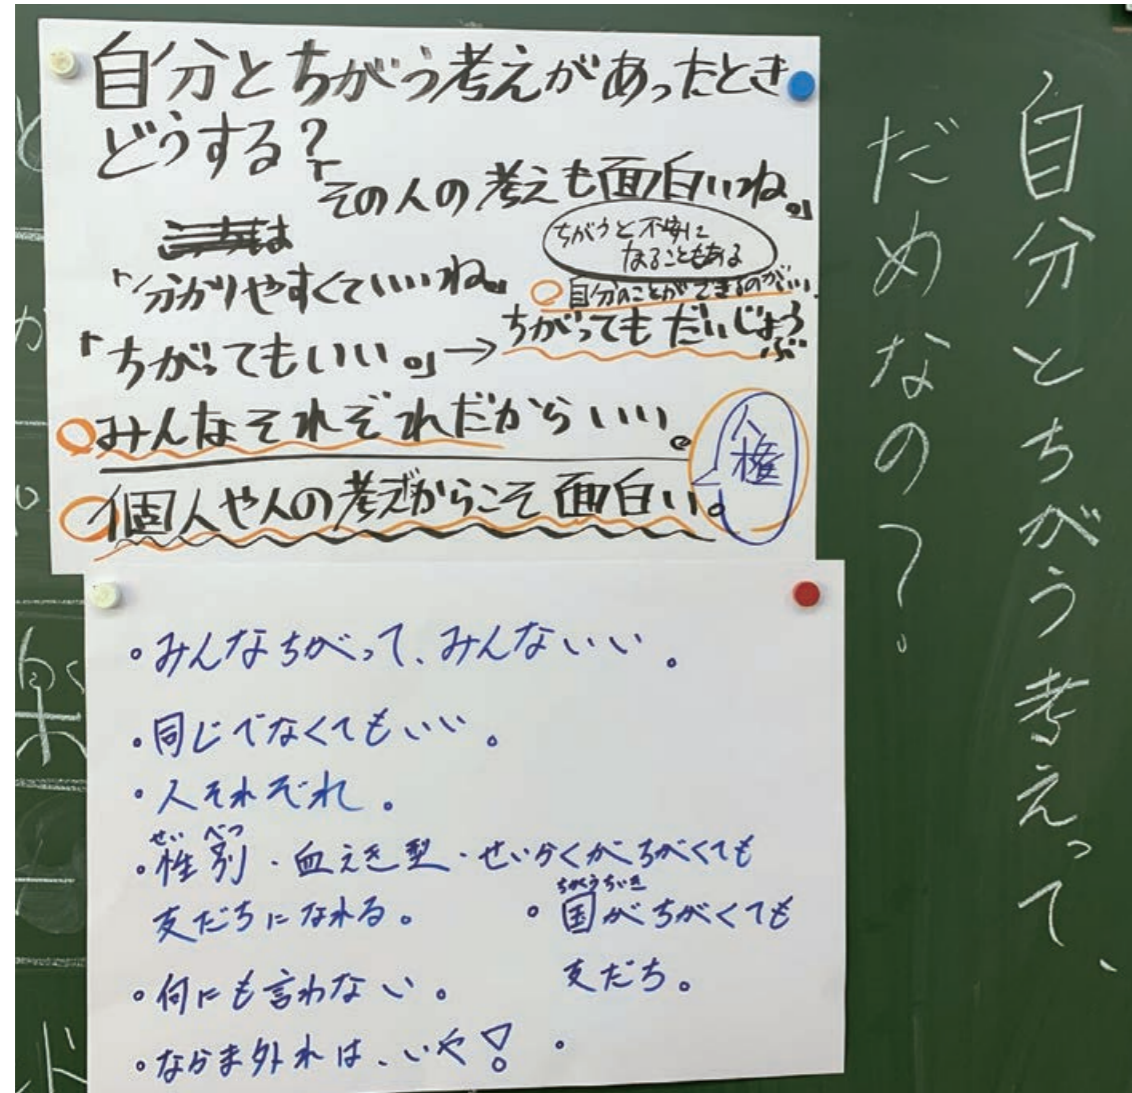 自分とちがう考えって、
だめなの？
自分とちがう考えがあったとき
どうする？
「その人の考えも面白いね。」
ちがうと不安に
なることもある
「分かりやすくていいね。」
自分のことができるのがいい
「ちがってもいい。」→ちがってもだいじょうぶ
みんなそれぞれだからいい。
個人や人の考えだからこそ面白い。
人権
・みんなちがって、みんないい。
・同じでなくてもいい。
・人それぞれ。
せいべつ
・性別・血えき型・せいかくがちがくても
友だちになれる。
ちがうちいき
・国がちがくても
友だち。
・何にも言わない。
・なかま外れは、いや!